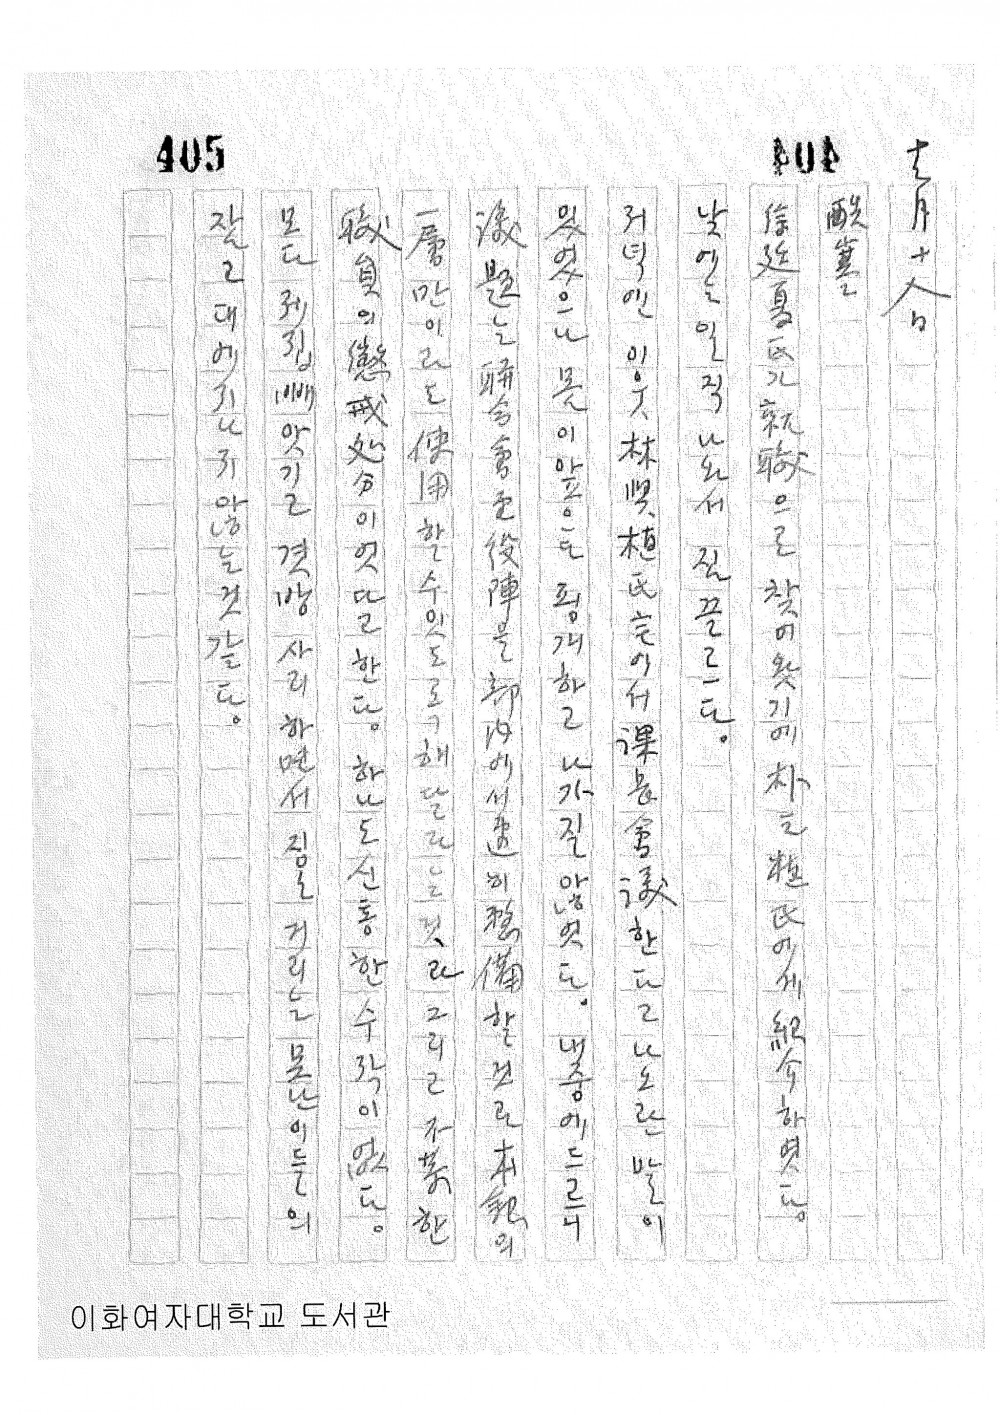 404
405
七月十八日
酷暑
徐廷夏氏가 就職으로 찾어왓기에 朴元植氏에게 紹介하엿다。
낮에는 일직 나와서 짐 끌르다。
저녁엔 이웃 林興植氏宅에서 課長會議한다고 나오란 말이
있엇으나 몸이 앞으다 핑개하고 나가질 않엇다。 내중에 드르니
議題는 聯合會 重役陣을 部內에서 速히 整備할 것과 本銀의
一層만이라도 使用할 수 잇도록 해달라는 것、과 그리고 자동한
職員의 懲戒处分이엇다고 한다。 하나도 신통한 수작이 없다。
모다 제집 빼앗기고 겻방사리 하면서 짐을 거리는 못난이들의
잘고대에 지나지 않는 것 같다。
이화여자대학교 도서관